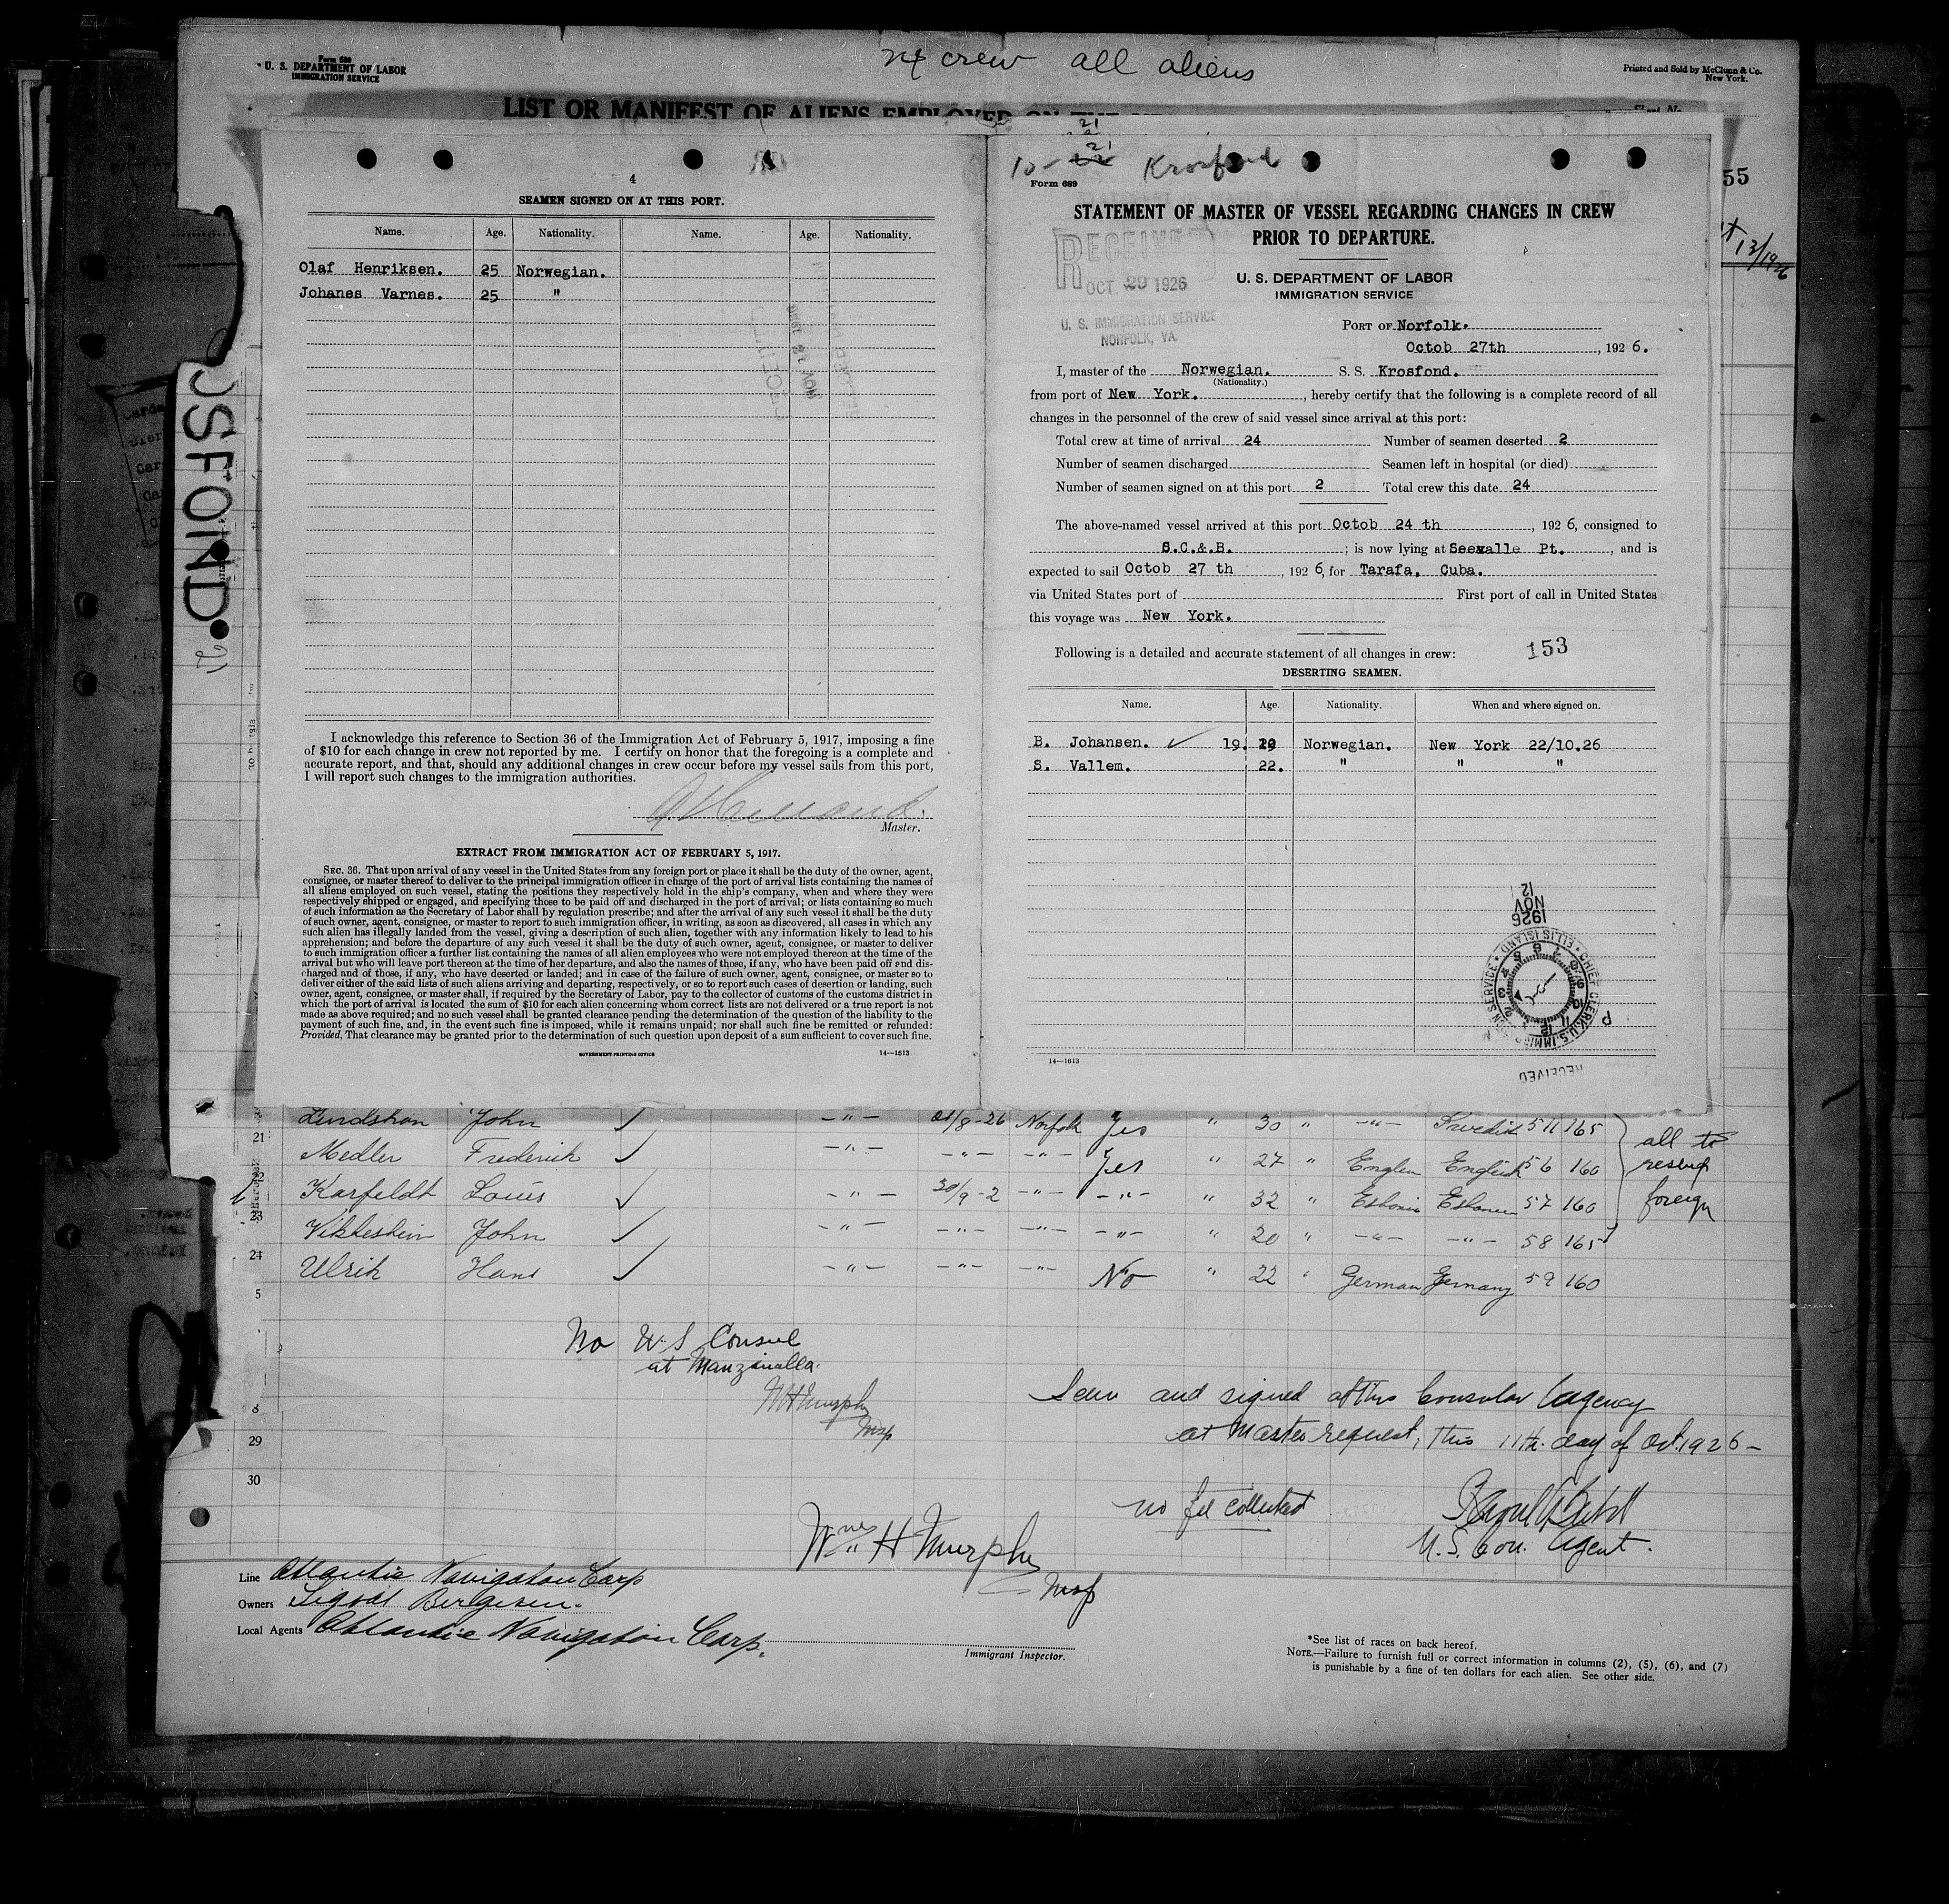 Form 680
U. S. DEPARTMENT OF LABOR
IMMIGRATION SERVICE
24 crew all aliens
Printed and Sold by McClunn & Co.
New York.
LIST OR MANIFEST OF ALIENS EMPLOYED ON THE
Sheet No.
55
13/1926
OSFOND
4
SEAMEN SIGNED ON AT THIS PORT.
Name. Age. Nationality. Name. Age. Nationality.
Olaf Henriksen. 25 Norwegian.
Johanes Varnes. 25 "
I acknowledge this reference to Section 36 of the Immigration Act of February 5, 1917, imposing a fine
of $10 for each change in crew not reported by me. I certify on honor that the foregoing is a complete and
accurate report, and that, should any additional changes in crew occur before my vessel sails from this port,
I will report such changes to the immigration authorities.
Master.
EXTRACT FROM IMMIGRATION ACT OF FEBRUARY 5, 1917.
SEC. 36. That upon arrival of any vessel in the United States from any foreign port or place it shall be the duty of the owner, agent,
consignee, or master thereof to deliver to the principal immigration officer in charge of the port of arrival lists containing the names of
all aliens employed on such vessel, stating the positions they respectively hold in the ship's company, when and where they were
respectively shipped or engaged, and specifying those to be paid off and discharged in the port of arrival; or lists containing so much
of such information as the Secretary of Labor shall by regulation prescribe; and after the arrival of any such vessel it shall be the duty
of such owner, agent, consignee, or master to report to such immigration officer, in writing, as soon as discovered, all cases in which any
such alien has illegally landed from the vessel, giving a description of such alien, together with any information likely to lead to his
apprehension; and before the departure of any such vessel it shall be the duty of such owner, agent, consignee, or master to deliver
to such immigration officer a further list containing the names of all alien employees who were not employed thereon at the time of the
arrival but who will leave port thereon at the time of her departure, and also the names of those, if any, who have been paid off and dis-
charged and of those, if any, who have deserted or landed; and in case of the failure of such owner, agent, consignee, or master so to
deliver either of the said lists of such aliens arriving and departing, respectively, or so to report such cases of desertion or landing, such
owner, agent, consignee, or master shall, if required by the Secretary of Labor, pay to the collector of customs of the customs district in
which the port of arrival is located the sum of $10 for each alien concerning whom correct lists are not delivered or a true report is not
made as above required; and no such vessel shall be granted clearance pending the determination of the question of the liability to the
payment of such fine, and, in the event such fine is imposed, while it remains unpaid; nor shall such fine be remitted or refunded:
Provided, That clearance may be granted prior to the determination of such question upon deposit of a sum sufficient to cover such fine.
GOVERNMENT PRINTING OFFICE 14—1513
21
10- 21 Krosfond
Form 689
STATEMENT OF MASTER OF VESSEL REGARDING CHANGES IN CREW
PRIOR TO DEPARTURE.
RECEIVED
OCT 29 1926
U. S. IMMIGRATION SERVICE
NORFOLK, VA.
U. S. DEPARTMENT OF LABOR
IMMIGRATION SERVICE
PORT OF Norfolk.
Octob 27th, 1926.
I, master of the Norwegian. S. S. Krosfond.
(Nationality.)
from port of New York., hereby certify that the following is a complete record of all
changes in the personnel of the crew of said vessel since arrival at this port:
Total crew at time of arrival 24 Number of seamen deserted 2
Number of seamen discharged Seamen left in hospital (or died)
Number of seamen signed on at this port 2 Total crew this date 24
The above-named vessel arrived at this port Octob 24 th, 1926, consigned to
S.C.&.B.; is now lying at Seewalle Pt., and is
expected to sail Octob 27 th, 1926, for Tarafa, Cuba.
via United States port of First port of call in United States
this voyage was New York.
Following is a detailed and accurate statement of all changes in crew: 153
DESERTING SEAMEN.
Name. Age. Nationality. When and where signed on.
B. Johansen. ✓ 19. Norwegian. New York 22/10.26
S. Vallem. 22. " " "
12
NOV
1926
CHIEF CLERK U.S. IMMIGRATION SERVICE • ELLIS ISLAND •
RECEIVED
14—1513
John ✓ -"- 21/8-26 Norfolk Yes " 30 " -"- 5 11 165
21 Medler Frederick ✓ -"- -"- -"- Yes " 27 " English 5 6 160
Karfeldt Louis ✓ -"- 30/9-2 -"- -"- " 32 " 5 7 160
23 John ✓ -"- -"- -"- -"- " 20 " -"- -"- 5 8 165
24 Ulrik Hans ✓ -"- -"- -"- No " 22 " German Germany 5 9 160
all to
reship
foreign
5
No U.S Consul
at Manzanilla.
WHMurphy
Insp
8
29
30
Seen and signed at this Consular Agency
at Masters request, this 11th. day of Oct. 1926-
no fee collected
U.S. Con. Agent.
Wm H Murphy
Insp
Line Atlantic Navigation Corp
Owners Sigval Bergesen.
Local Agents Atlantic Navigation Corp.
Immigrant Inspector.
*See list of races on back hereof.
NOTE.—Failure to furnish full or correct information in columns (2), (5), (6), and (7)
is punishable by a fine of ten dollars for each alien. See other side.